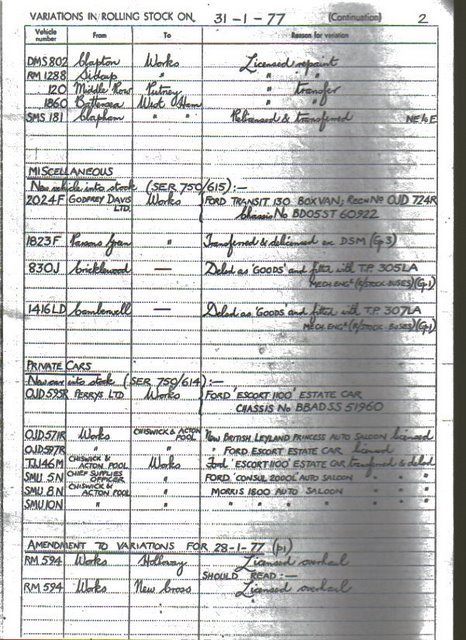 VARIATIONS IN ROLLING STOCK ON, 31-1-77 (Continuation) 2
Vehicle number From To Reason for variation
DMS 802 Clapton Works Licensed repaint
RM 1288 Sidcup " " "
120 Middle Row Putney " transfer
1860 Battersea West Ham " "
SMS 181 Clapham " " Relicensed & transferred NE to E
MISCELLANEOUS
New vehicle into stock (SER 750/615):—
2024F GODFREY DAVIS LTD. Works FORD TRANSIT 130 BOXVAN; REGN No OJD 724R
Chassis No BD05ST 60922
1823F Parsons Green " Transferred & delicensed ex DSM (Gp3)
830J Cricklewood — Delsd as 'GOODS' and fitted with T.P. 305LA
MECH ENGR (R/STOCK-BUSES) (Gp1)
1416LD Camberwell — Delsd as 'GOODS' and fitted with T.P. 307LA
MECH ENGR (R/STOCK BUSES) (Gp1)
PRIVATE CARS
New car into stock (SER 750/614):—
OJD 595R PERRYS LTD Works FORD 'ESCORT 1100' ESTATE CAR
CHASSIS No BBADSS 51960
OJD 571R Works CHISWICK & ACTON POOL New BRITISH LEYLAND PRINCESS AUTO SALOON licensed
OJD 597R " " " FORD ESCORT ESTATE CAR licensed
TJJ 46M CHISWICK & ACTON POOL Works Ford 'ESCORT 1100' ESTATE CAR transferred & delsd
SMU 5N CHIEF SUPPLIES OFFICER " FORD 'CONSUL 2000L' AUTO SALOON " " "
SMU 8N CHISWICK & ACTON POOL " MORRIS 1800 AUTO SALOON " " "
SMU 10N " " " " " " " "
AMENDMENT TO VARIATIONS FOR 28-1-77 (p1)
RM 594 Works Holloway Licensed overhaul
SHOULD READ:—
RM 594 Works New Cross Licensed overhaul